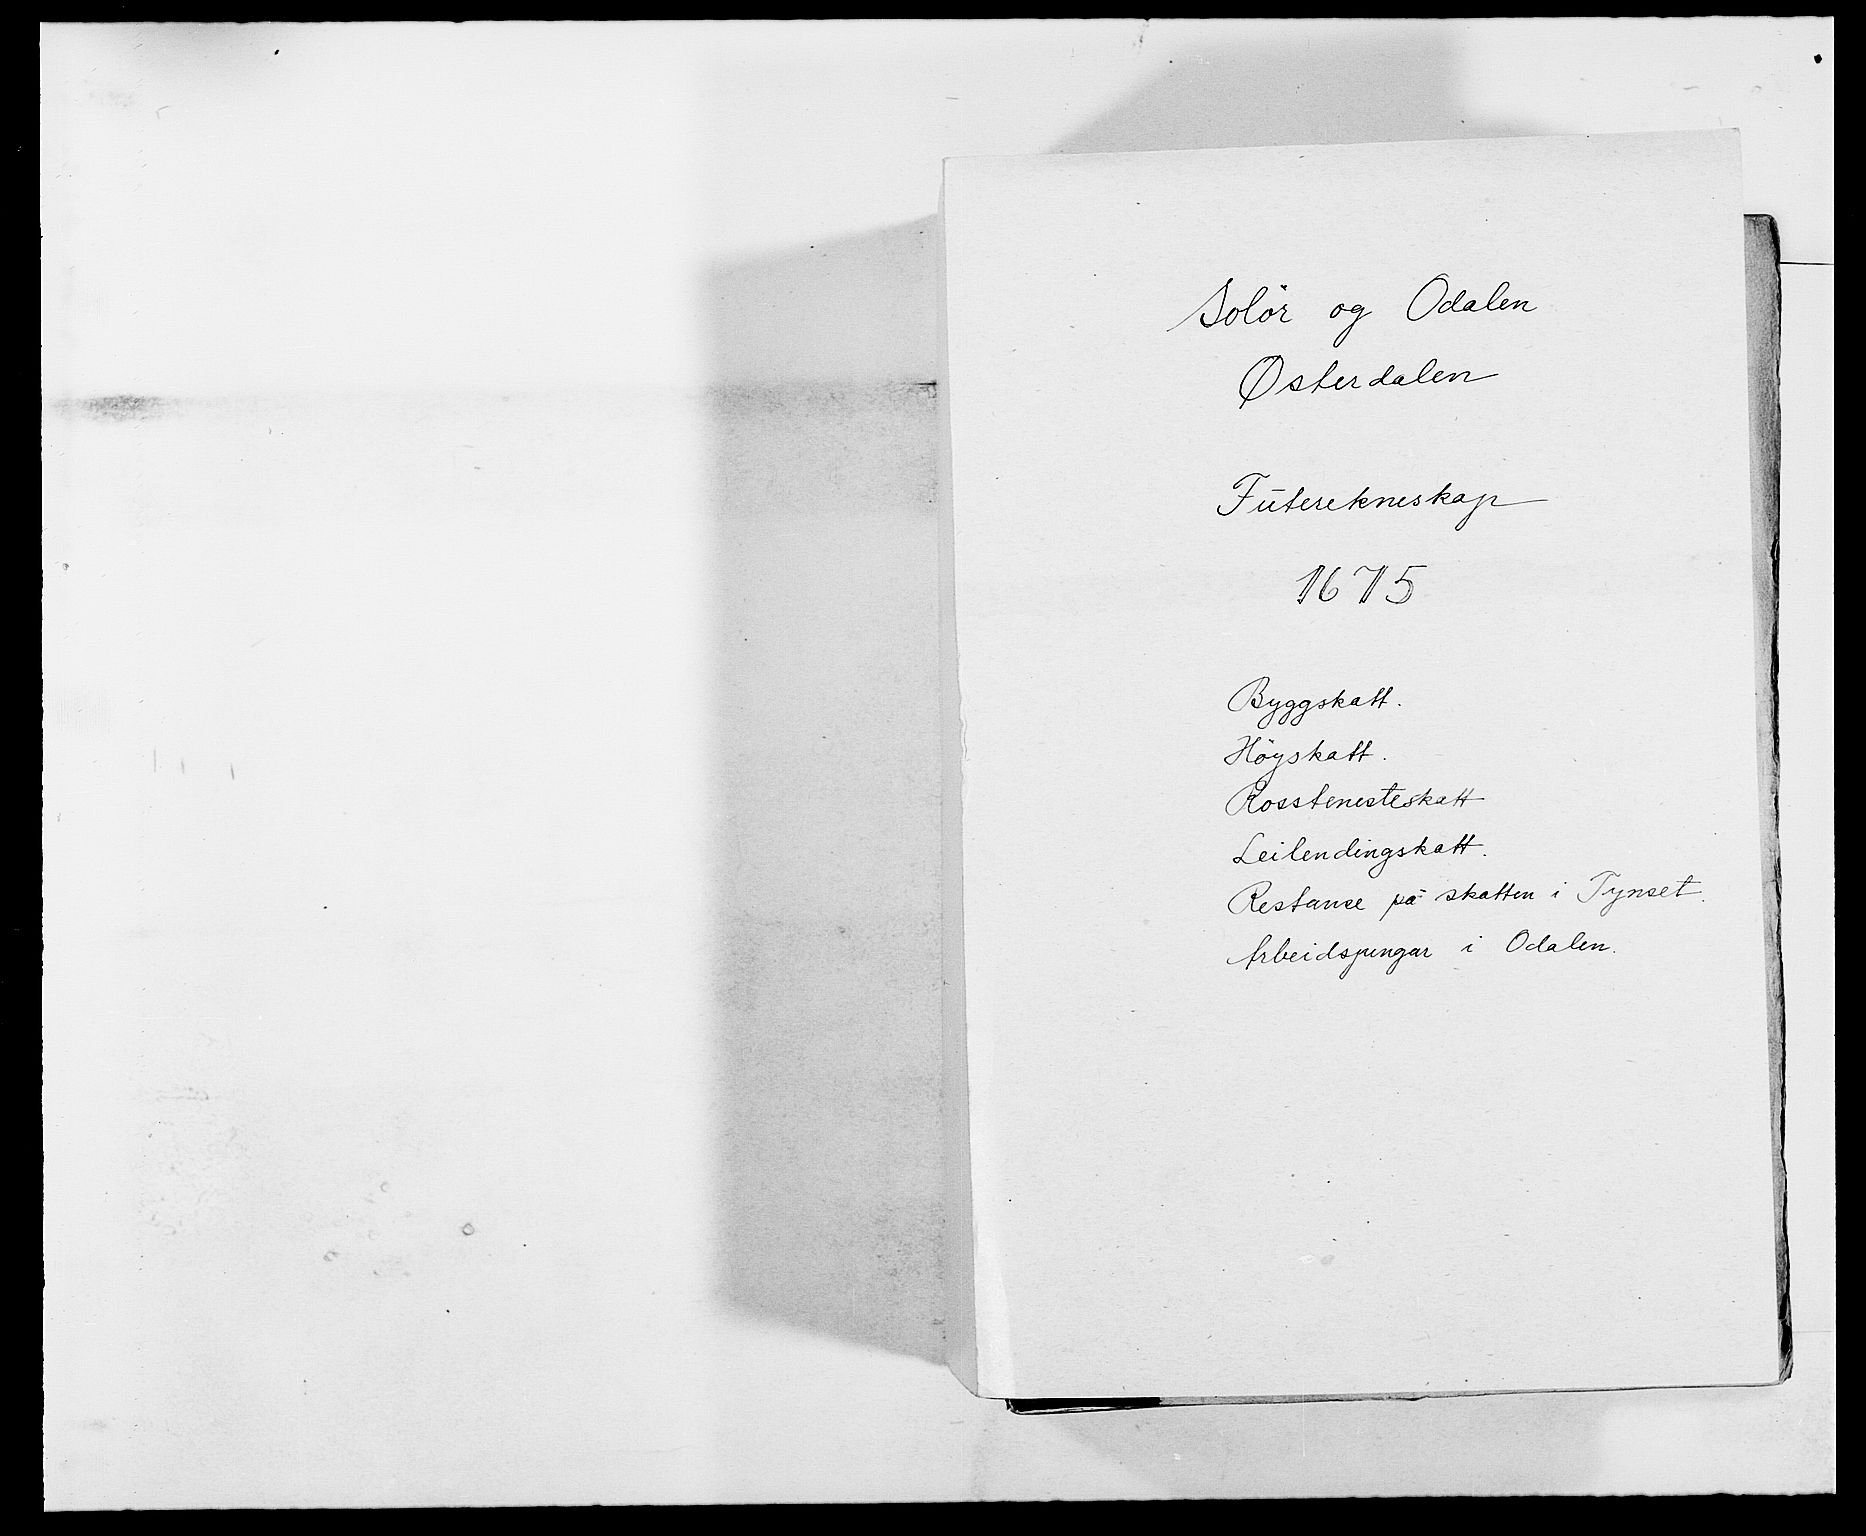 Solör og Odalen
Østerdalen
Futerekneskap
1675
Byggskatt.
Höyskatt.
Rosstenesteskatt
Leilendingskatt.
Restanse på skatten i Tynset.
Arbeidspengar i Odalen.